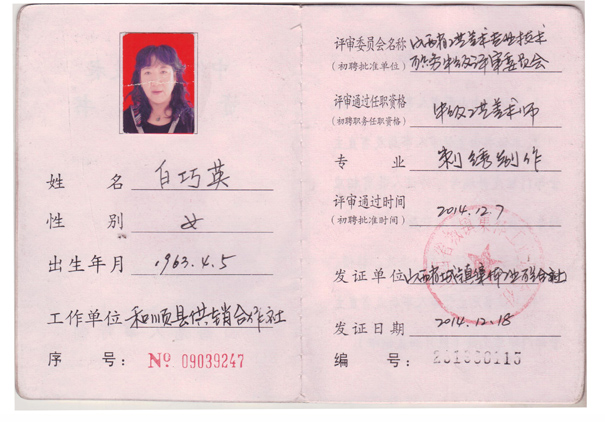 姓 名 白巧英
性 别 女
出生年月 1963.4.5
工作单位 和顺县供销合作社
序 号: № 09039247
评审委员会名称 山西省工艺美术专业技术
(初聘批准单位) 职务中级评审委员会
评审通过任职资格 中级工艺美术师
(初聘职务任职资格)
专 业 刺绣制作
评审通过时间 2014.12.7
(初聘批准时间)
发证单位 山西省城镇集体工业联合社
发证日期 2014.12.18
编 号: